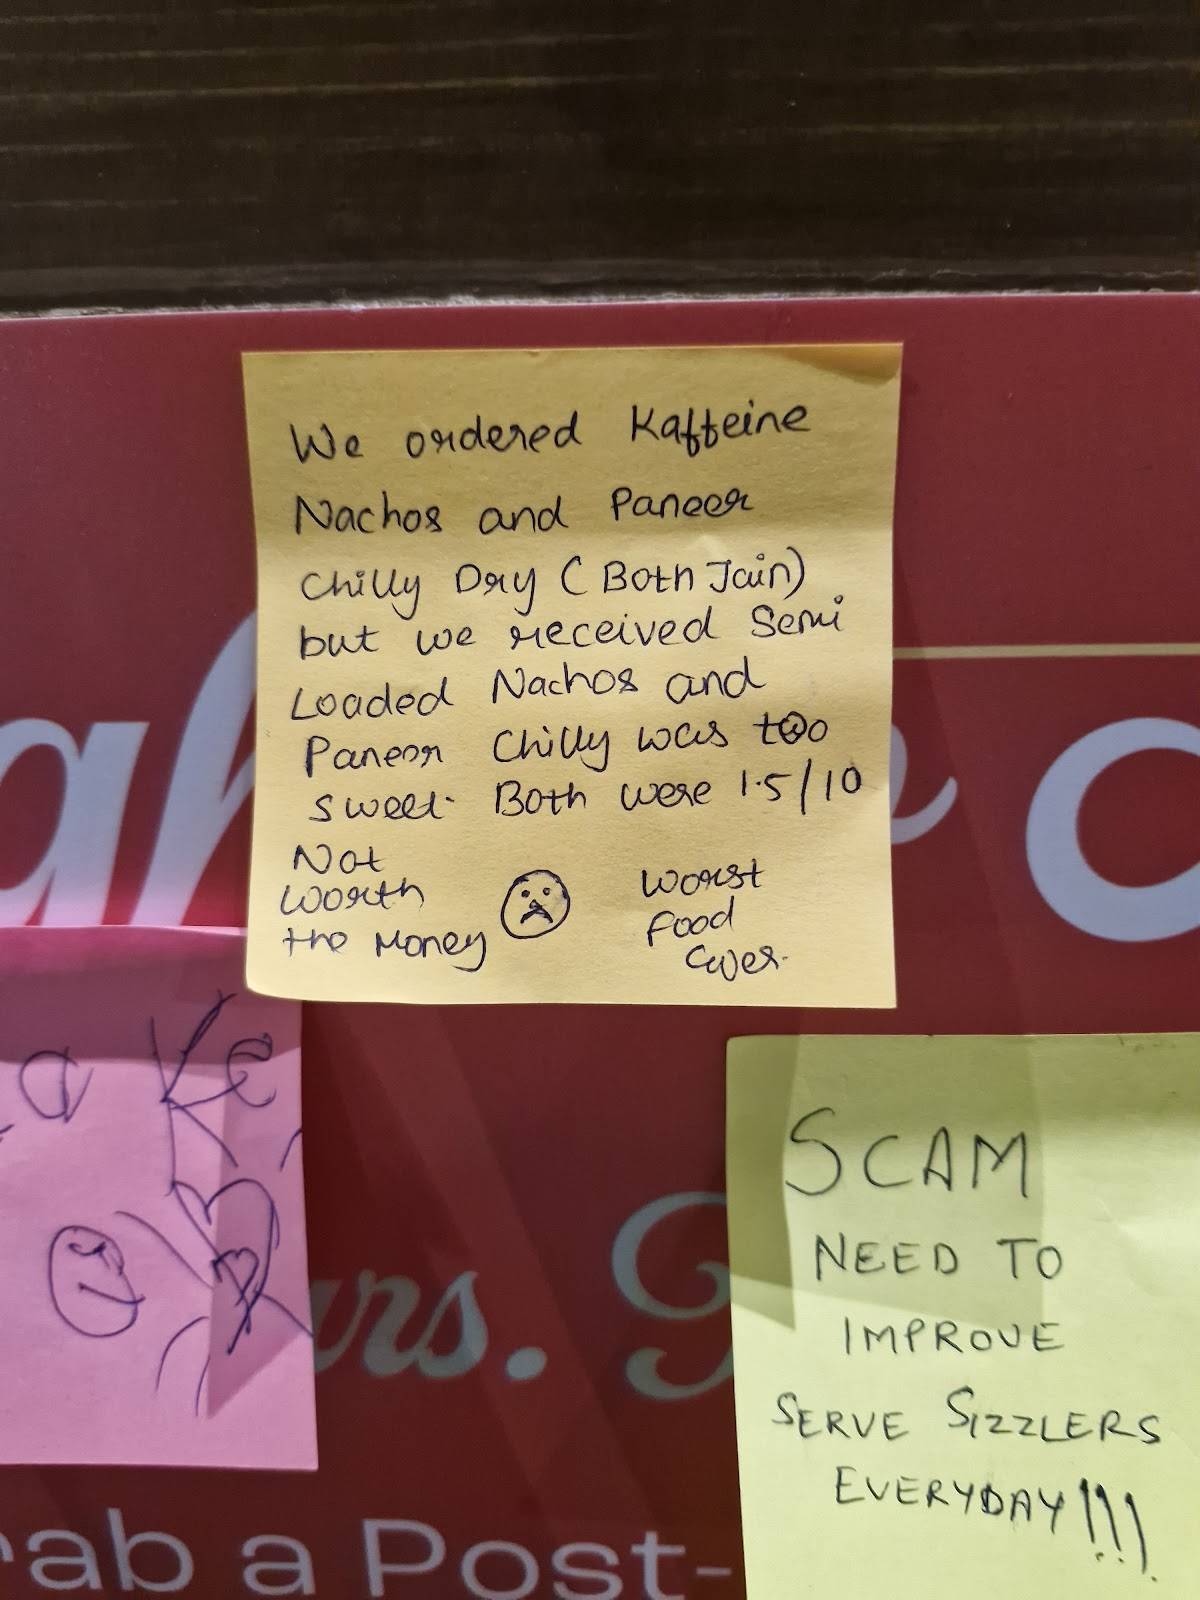 We ordered Kaffeine
Nachos and Paneer
Chilly Dry (Both Jain)
but we received Semi
Loaded Nachos and
Paneer Chilly was too
sweet. Both were 1.5/10
Not
Worth
the Money
Worst
Food
Ever.
SCAM
NEED TO
IMPROVE
SERVE SIZZLERS
EVERYDAY!!!
ars.
rab a Post-